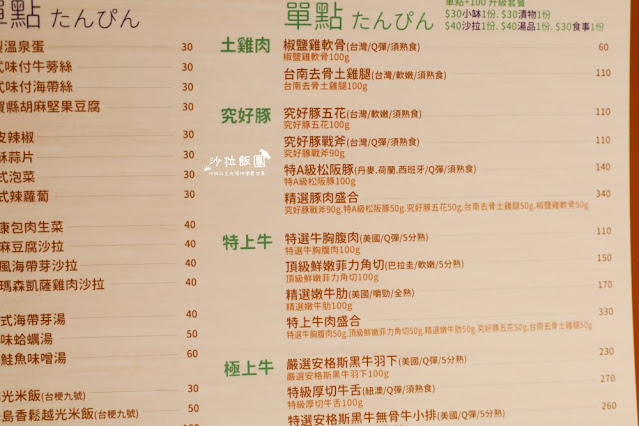 單點 たんぴん
溫泉蛋 30
式味付牛蒡絲 30
式味付海帶絲 30
賀縣胡麻堅果豆腐 30
皮辣椒 30
酥蒜片 30
式泡菜 30
式辣蘿蔔 30
康包肉生菜 40
麻豆腐沙拉 40
風海帶芽沙拉 40
瑪森凱薩雞肉沙拉 40
式海帶芽湯 40
味蛤蠣湯 50
鮭魚味噌湯 60
光米飯(台梗九號) 30
島香鬆越光米飯(台梗九號) 50
單點 たんぴん
單點+100 升級套餐
$30小缽1份. $30漬物1份.
$40沙拉1份. $40湯品1份. $30食事1份.
土雞肉
椒鹽雞軟骨(台灣/Q彈/須熟食) 60
椒鹽雞軟骨100g
台南去骨土雞腿(台灣/軟嫩/須熟食) 110
台南去骨土雞腿100g
究好豚
究好豚五花(台灣/軟嫩/須熟食) 110
究好豚五花100g
究好豚戰斧(台灣/Q彈/須熟食) 110
究好豚戰斧90g
特A級松阪豚(丹麥.荷蘭.西班牙/Q彈/須熟食) 140
特A級松阪豚100g
精選豚肉盛合 340
究好豚戰斧90g.特A級松阪豚50g.究好豚五花50g.台南去骨土雞腿50g.椒鹽雞軟骨50g
特上牛
特選牛胸腹肉(美國/Q彈/5分熟) 110
特選牛胸腹肉100g
頂級鮮嫩菲力角切(巴拉圭/軟嫩/5分熟) 150
頂級鮮嫩菲力角切100g
精選嫩牛肋(美國/嚼勁/全熟) 170
精選嫩牛肋100g
特上牛肉盛合 330
特選牛胸腹肉50g.頂級鮮嫩菲力角切50g.精選嫩牛肋50g.究好豚五花50g.台南去骨土雞腿50g
極上牛
嚴選安格斯黑牛羽下(美國/Q彈/5分熟) 230
嚴選安格斯黑牛羽下100g
特級厚切牛舌(紐澳/Q彈/須熟食) 270
特級厚切牛舌100g
特選安格斯黑牛無骨牛小排(美國/Q彈/5分熟) 260
沙拉飯團